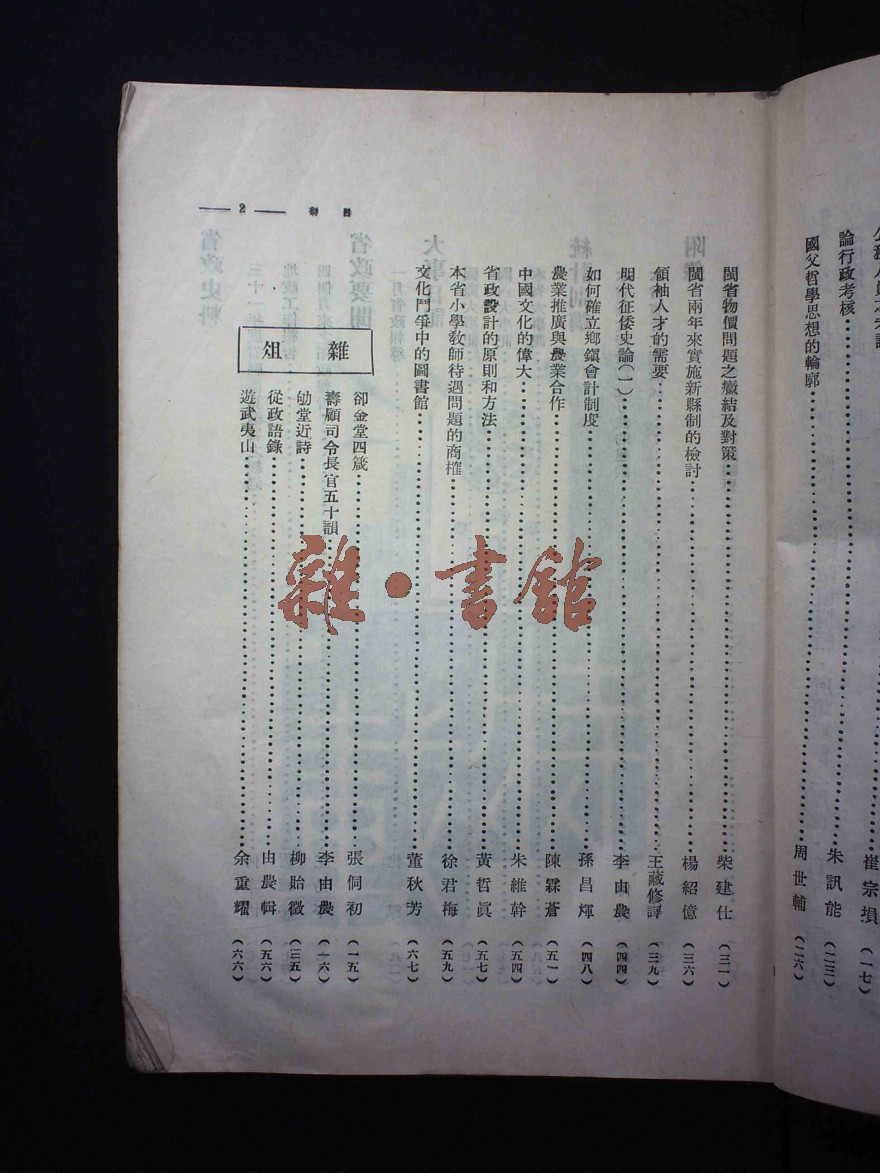 論行政考核 朱訊能 (二三)
國父哲學思想的輪廓 周世輔 (二六)
— 2 —
目 錄
閩省物價問題之癥結及對策 柴建仕 (三一)
閩省兩年來實施新縣制的檢討 楊紹億 (三六)
領袖人才的需要 王藏修譯 (三九)
明代征倭史論(一) 李由農 (四四)
如何確立鄉鎮會計制度 孫昌煇 (四八)
農業推廣與農業合作 陳霖蒼 (五一)
中國文化的偉大 朱維幹 (五四)
省政設計的原則和方法 黃哲眞 (五七)
本省小學敎師待遇問題的商榷 徐君梅 (五九)
文化鬥爭中的圖書館 董秋芳 (六七)
雜 俎
卻金堂四箴 張侗初 (一五)
壽顧司令長官五十韻 李由農 (一六)
劬堂近詩 柳貽徵 (三五)
從政語錄 由農輯 (五六)
遊武夷山 余重耀 (六六)
雜·書館